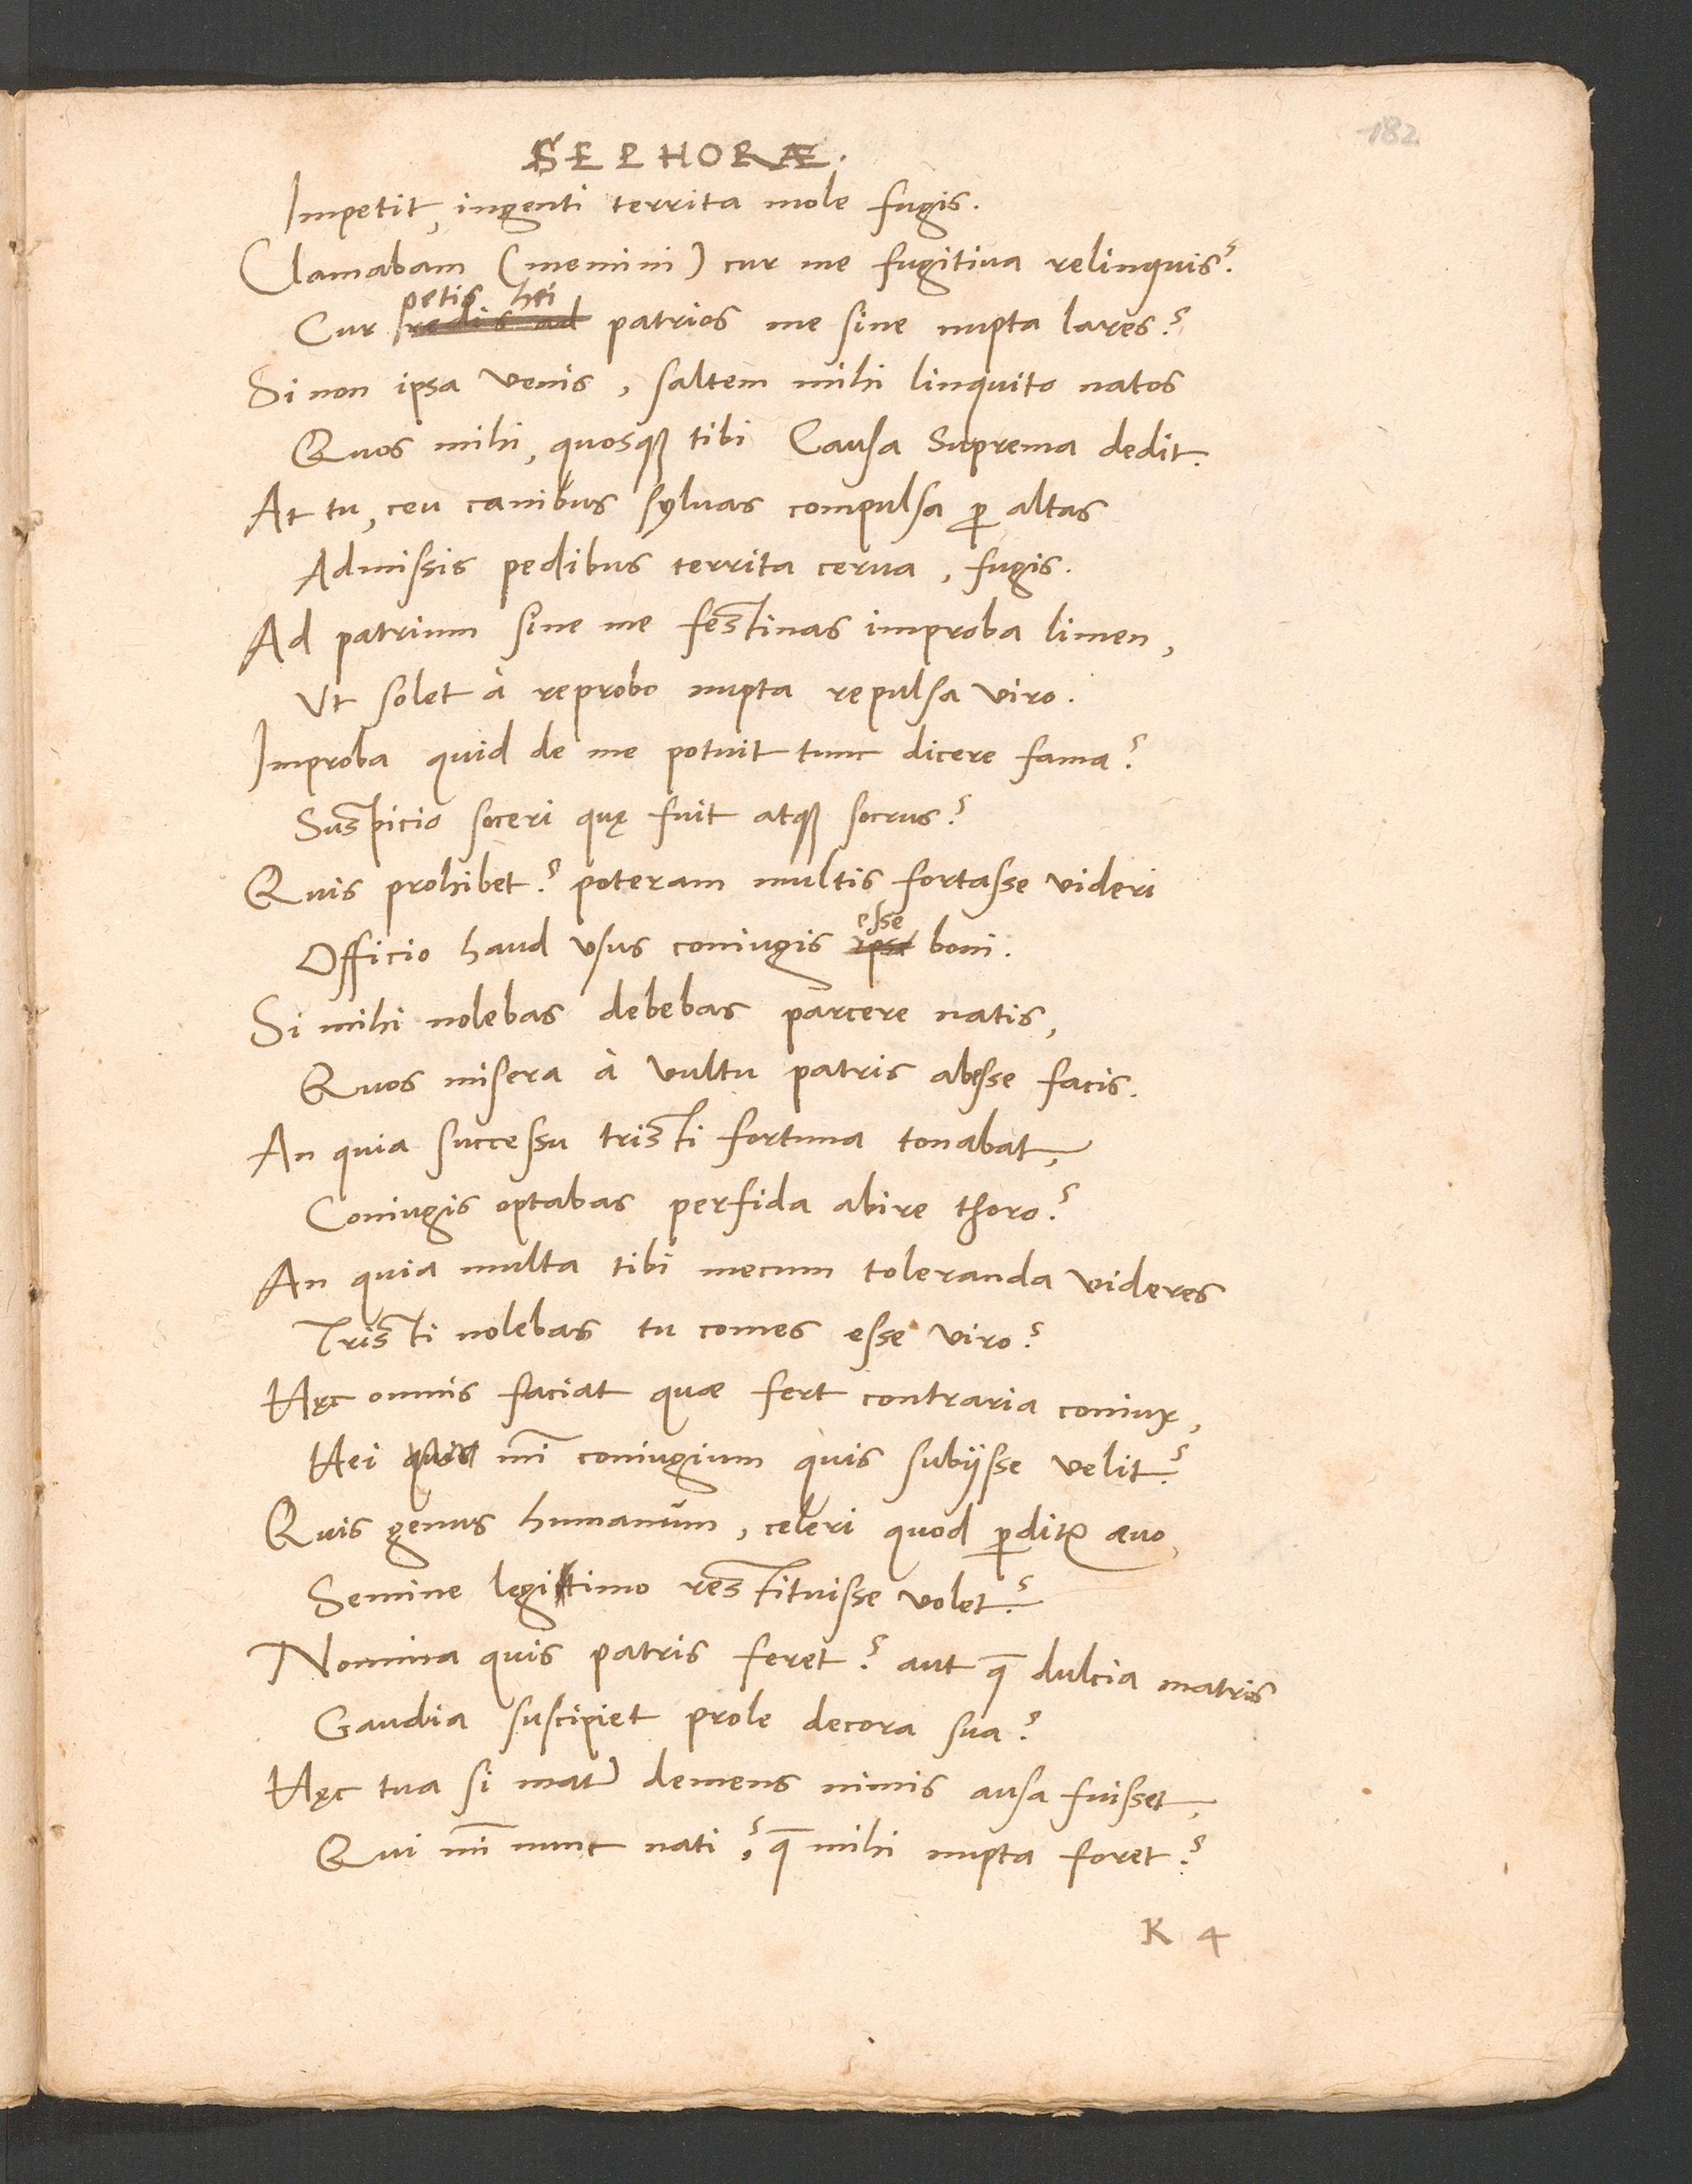 182
SEPHORÆ.
Impetit, ingenti territa mole fugis.
Clamabam (memini) cur me fugitiua relinquis?
petis hei
Cur redis ad patrios me sine nupta lares?
Si non ipsa venis, saltem mihi linquito natos
Quos mihi, quosq; tibi Causa Suprema dedit.
At tu, ceu canibus syluas compulsa ꝑ altas
Admissis pedibus territa cerua, fugis.
Ad patrium sine me festinas improba limen,
Vt solet à reprobo nupta repulsa viro.
Improba quid de me potuit tunc dicere fama?
Suspicio soceri quę fuit atq; socrus?
Quis prohibet? poteram multis fortasse videri
esse
Officio haud vsus coniugis ipse boni.
Si mihi nolebas debebas parcere natis,
Quos misera à vultu patris abesse facis.
An quia successu tristi fortuna tonabat,
Coniugis optabas perfida abire thoro?
An quia multa tibi mecum toleranda videres
Tristi nolebas tu comes esse viro?
Hęc omnis faciat quæ fert contraria coniux,
Hei mī coniugium quis subijsse velit?
Quis genus humanum, celeri quod ꝑditur æuo,
Semine legitimo restituisse volet?
Nomina quis patris feret? aut q̄ dulcia matris
Gaudia suscipiet prole decora sua?
Hęc tua si mater demens nimis ausa fuisset,
Qui mī nunc nati? q̄ mihi nupta foret?
K 4